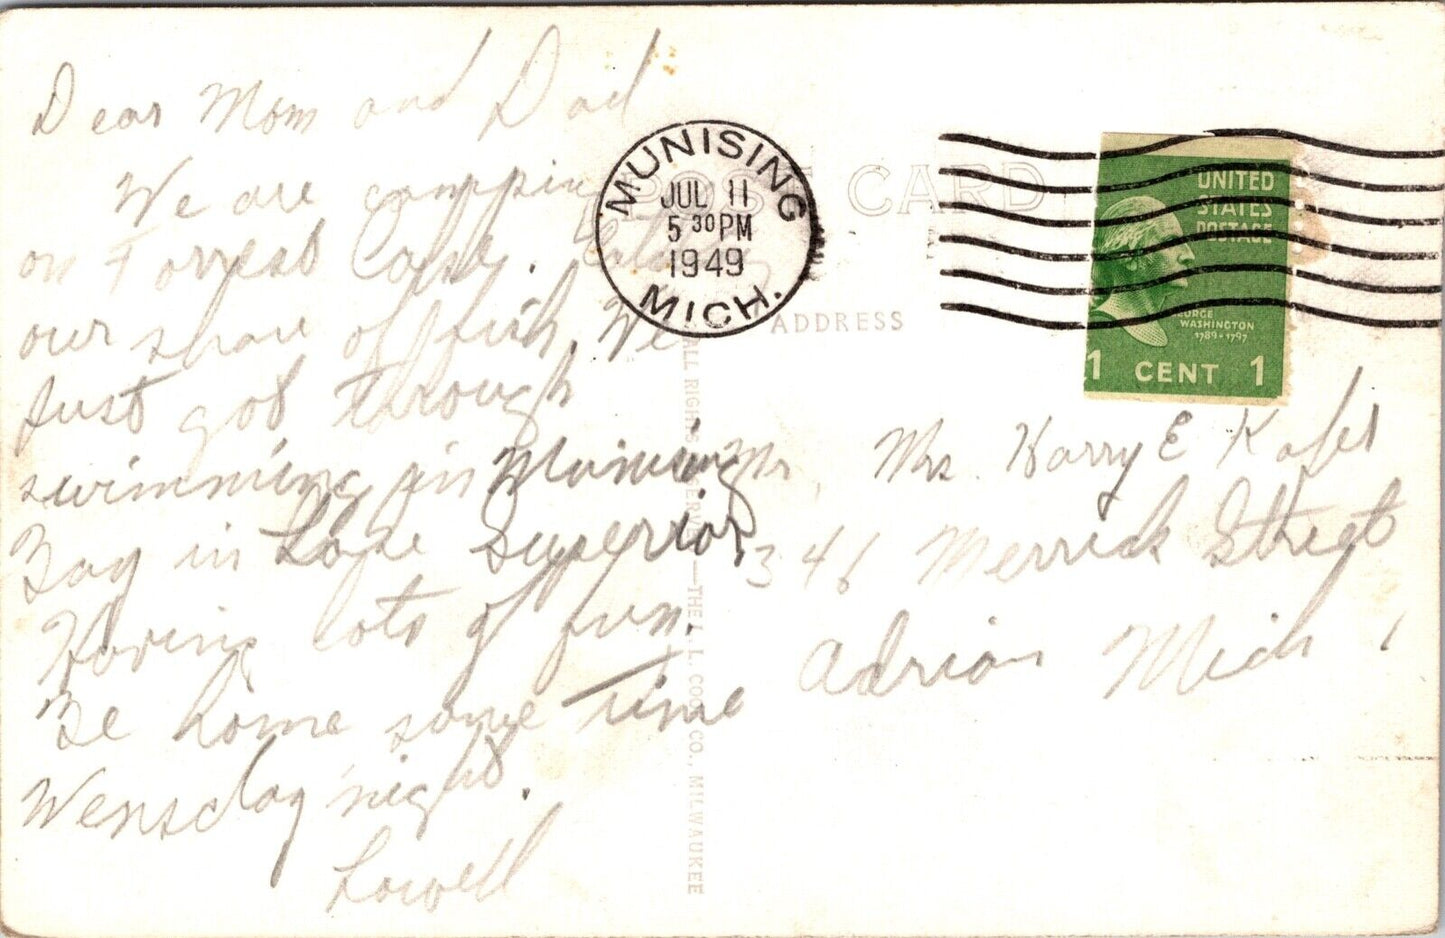 Dear Mom and Dad
We are campping
on Forrest Lake. Catching
our share of fish. We
Just got through
swimming in Munising
Bay in Lake Superior
Having lots of fun.
Be home some time
Wensday night.
Lowell
MUNISING
JUL 11
5 30 PM
1949
MICH.
POST CARD
ADDRESS
UNITED
STATES
POSTAGE
GEORGE
WASHINGTON
1789-1797
1 CENT 1
Mr. Mrs. Harry E
346 Merrick Street
Adrian Mich.
ALL RIGHTS RESERVED—THE L. L. COOK CO., MILWAUKEE